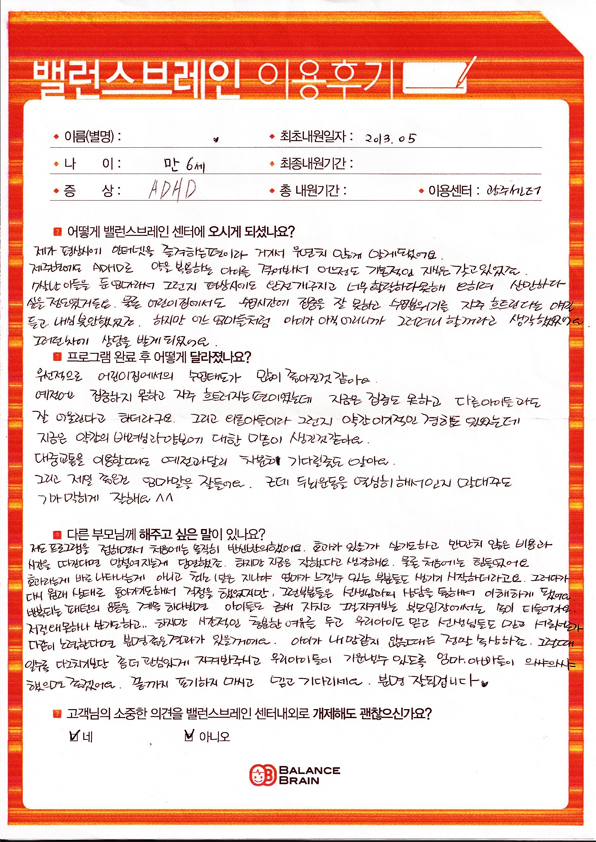 밸런스브레인 이용후기
이름(별명) :
최초내원일자 : 2013.05
나 이 : 만 6세
최종내원기간 :
증 상 : ADHD
총 내원기간 :
이용센터 : 광주센터
어떻게 밸런스브레인 센터에 오시게 되셨나요?
제가 평상시에 인터넷을 즐겨하는편이라 거기서 우연치 않게 알게되었어요.
ADHD로 약을 복용하는 아이를
갖고있었고
물론 어린이집에서도 수업시간에 집중을 잘 못하고 수업분위기를 자주 흐트린다는 얘길
듣고 내심 하지만 여느 엄마들처럼 아이가 아직 어리니까 그러려니 할꺼라고 생각했었어요
그러던차에 상담을 받게 되었어요.
프로그램 완료 후 어떻게 달라졌나요?
우선적으로 어린이집에서의 수업태도가 많이 좋아진것 같아요.
예전에 집중하지 못하고 자주 흐트러지는편이였는데 지금은 집중도 하고 다른아이들과도
잘 어울린다고 하더라구요. 그리고 외동아들이라 그런지 약간 이기적인 경향도 있었는데
지금은 약간의 배려심과 양보에 대한 마음이 생긴것같아요.
대중교통을 이용할때도 예전과달리 차분히 기다릴줄도 알아요.
그리고 제일 좋은건 엄마말을 잘들어요. 근데 두뇌운동을 열심히 해서인지 말대꾸도
기가막히게 잘해요 ^^
다른 부모님께 해주고 싶은 말이 있나요?
저도 프로그램을 접하면서 처음에는 솔직히 반신반의했어요. 효과가 있을까 싶기도하고 만만치 않은 비용과
시간을 따진다면 망설여지는게 당연했죠. 하지만 지금은 잘했다고 생각해요. 물론 처음에는 힘들었어요
효과라는게 바로 나타나는게 아니고 첫 달은 지나야 엄마가 느낄수 있는 부분들도 생기기 시작하더라고요. 그러다가
다시 원래 상태로 돌아가기도해서 걱정을 했었지만, 그런부분은 선생님과의 상담을 통해서 이해하게 되었어요
반복되는 패턴의 운동을 계속 하다보면 아이들도 금새 지치고 그걸지켜보는 부모입장에서는 많이 더들어가죠.
하지만 시간적인 여유를 두고 우리아이도 믿고 선생님들도 믿고
다같이 노력한다면 분명 좋은결과가 있을거예요. 아이가 내맘같지 않을때는 정말 속상하죠. 그럴때
지켜봐주시고 우리아이들이 기운낼수 있도록 엄마.아빠들이 으쌰으쌰
했으면 좋겠어요. 끝까지 포기하지 마시고 믿고 기다리세요. 분명 잘될겁니다
고객님의 소중한 의견을 밸런스브레인 센터내외로 개제해도 괜찮으신가요?
네 아니오
BALANCE
BRAIN